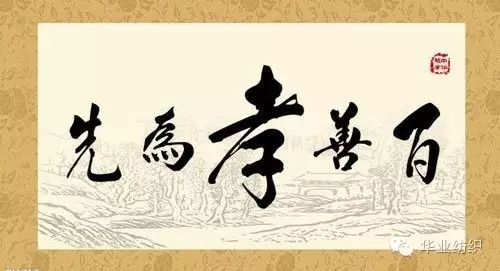 百善孝為先
华业纺织